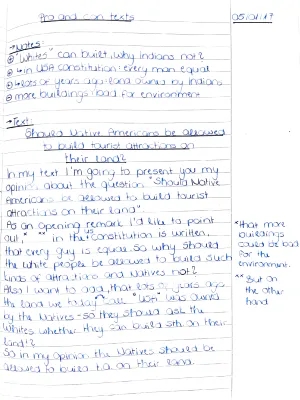 Pro and Con texts
05/01/17
→Notes
⊕ "Whites" can built, why Indians not?
⊕ in USA constitution: every man equal
⊕ lots of years ago land owned by Indians
⊖ more buildings: bad for environment
→Text:
Should Native Americans be allowed
to build tourist attractions on
their land?
In my text I'm going to present you my
opinion about the question "Should Native
Americans be allowed to build tourist
attractions on their land".
As an opening remark I'd like to point
out,* ** in the US constitution is written,
that every guy is equal. So why should
the white people be allowed to build such
kinds of attractions and Natives not?
Also I want to add, that lots of years ago
the land we today call "USA" was owned
by the Natives - so they should ask the
Whites whether they can build sth on their
land!?
So in my opinion the Natives should be
allowed to build t.a. on their land.
*that more
buildings
could be bad
for the
environment.
** But on
the other
hand